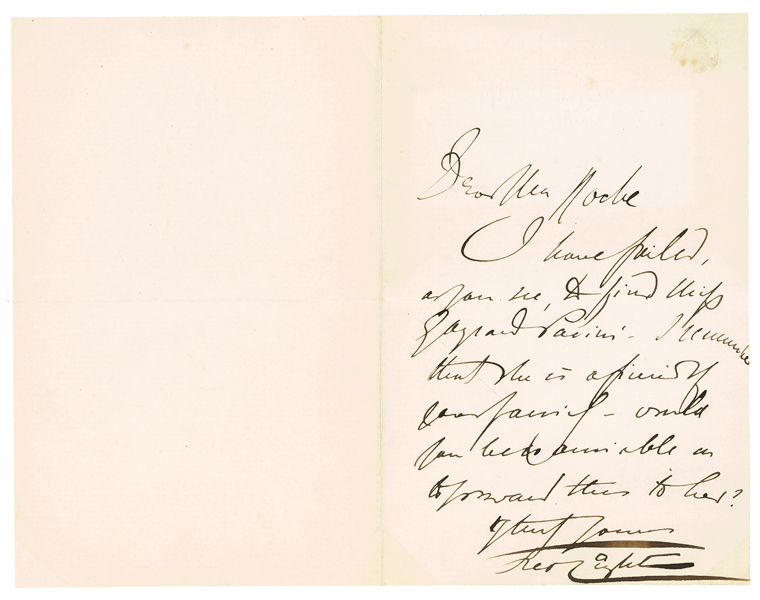 Dear Mrs Roche
I have failed,
as you see, to find Miss
Pacini - I remember
that she is a friend of
your family - would
you be so amiable as
to forward this to her?
Yours
Fred Leighton